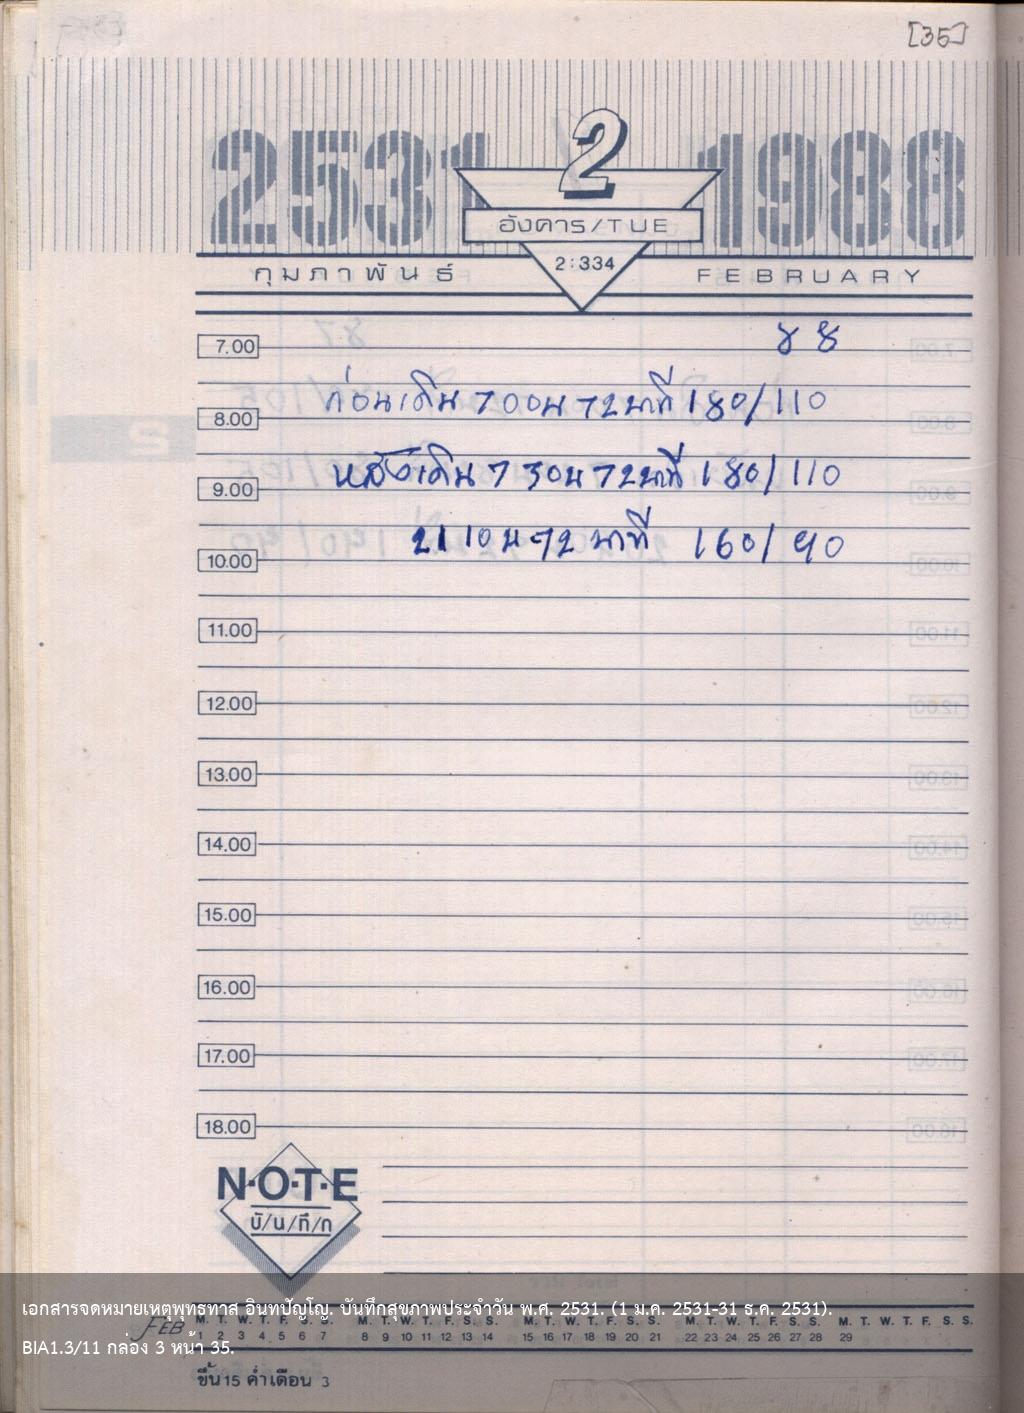 [35]
2531 2 1988
อังคาร/TUE
2:334
กุมภาพันธ์ FEBRUARY
7.00 88
ก่อนเดิน 7 00น 72นาที 180/110
8.00
หลังเดิน 7 30น 72นาที 180/110
9.00
21 10 น 72 นาที 160/90
10.00
11.00
12.00
13.00
14.00
15.00
16.00
17.00
18.00
N·O·T·E
บั/น/ทึ/ก
เอกสารจดหมายเหตุพุทธทาส อินทปัญโญ. บันทึกสุขภาพประจำวัน พ.ศ. 2531. (1 ม.ค. 2531-31 ธ.ค. 2531).
FEB M. T. W. T. F. S. S. M. T. W. T. F. S. S. M. T. W. T. F. S. S. M. T. W. T. F. S. S. M. T. W. T. F. S. S.
1 2 3 4 5 6 7 8 9 10 11 12 13 14 15 16 17 18 19 20 21 22 23 24 25 26 27 28 29
BIA1.3/11 กล่อง 3 หน้า 35.
ขึ้น 15 ค่ำ เดือน 3